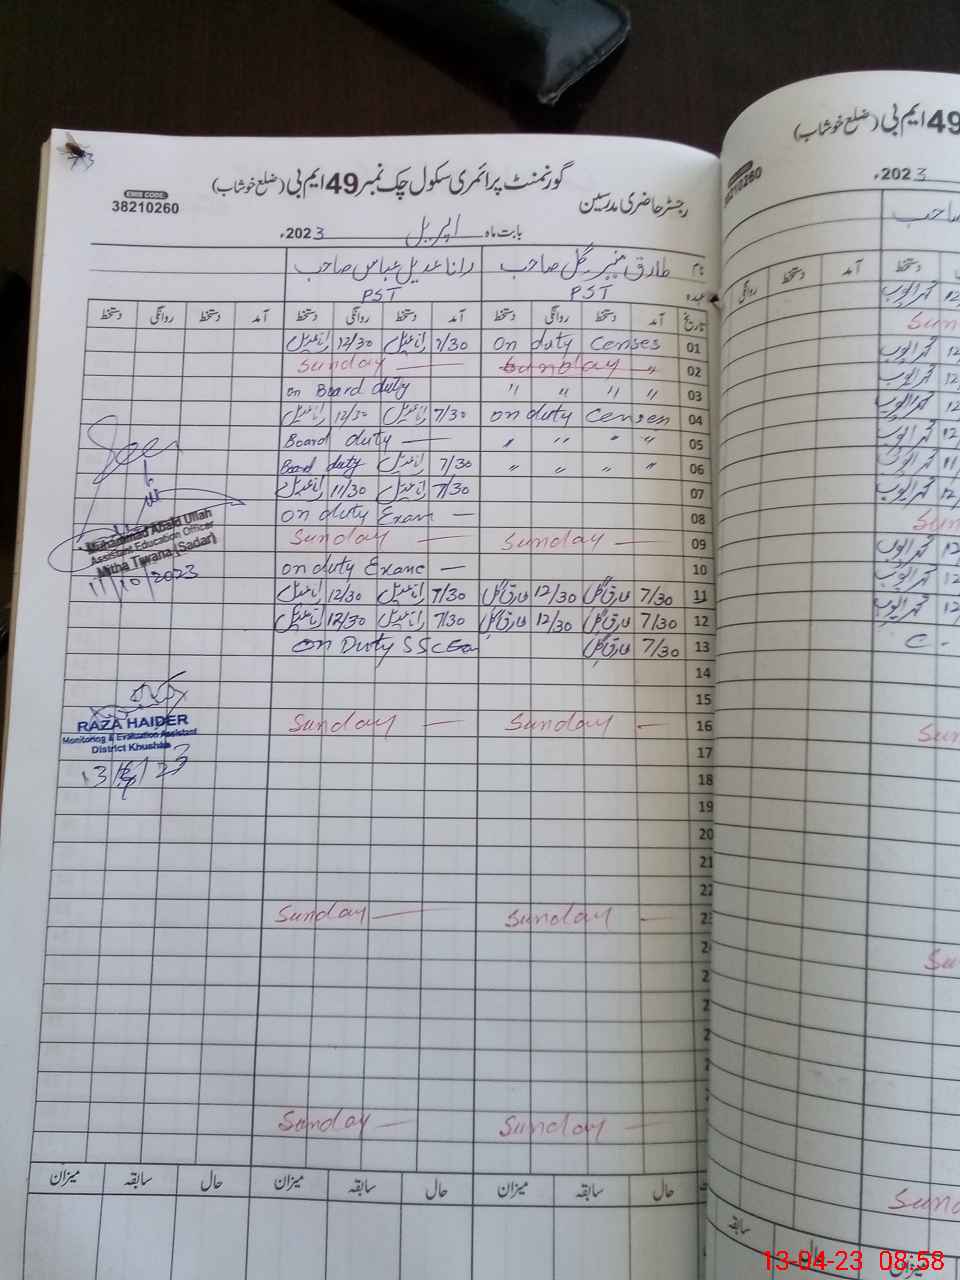 گورنمنٹ پرائمری سکول چک نمبر 49 ایم بی (ضلع خوشاب)
رجسٹر حاضری مدرسین
EMIS CODE:
38210260
بابت ماہ اپریل 2023ء
نام طارق منیر گل صاحب رانا عدیل عباس صاحب
عہدہ PST PST
تاریخ آمد دستخط روانگی دستخط آمد دستخط روانگی دستخط آمد دستخط روانگی دستخط
01 on duty Censes 7/30 رانا عدیل 12/30 رانا عدیل
02 Sunday — " Sunday —
03 " " " " on Board duty
04 on duty Censen 7/30 رانا عدیل 12/30 رانا عدیل
05 " " " " Board duty —
06 " " " " 7/30 رانا عدیل Board duty
07 7/30 رانا عدیل 11/30 رانا عدیل
08 on duty Exam —
09 Sunday — Sunday —
10 on duty Exame —
11 7/30 طارق گل 12/30 طارق گل 7/30 رانا عدیل 12/30 رانا عدیل
12 7/30 طارق گل 12/30 طارق گل 7/30 رانا عدیل 12/30 رانا عدیل
13 7/30 طارق گل on Duty SSC Exa
14
15
16 Sunday — Sunday —
17
18
19
20
21
22
23 Sunday — Sunday —
2
2
2
2
2
Sunday — Sunday —
حال سابقہ میزان حال سابقہ میزان حال سابقہ میزان
Muhammad Abaid Ullah
Assistant Education Officer
Mitha Tiwana (Sadar)
11/10/2023
RAZA HAIDER
Monitoring & Evaluation Assistant
District Khushab
13/4/23
49 ایم بی (ضلع خوشاب)
38210260
2023ء
صاحب
دستخط آمد دستخط روانگی
محمد ایوب
Sun
محمد ایوب 12
محمد ایوب 12
محمد ایوب 12
محمد ایوب 12
محمد ایوب 11
محمد ایوب 12
Sun
محمد ایوب 12
محمد ایوب 12
محمد ایوب 12
C.
Sun
Su
Sun
حال سابقہ
میزان
13-04-23 08:58